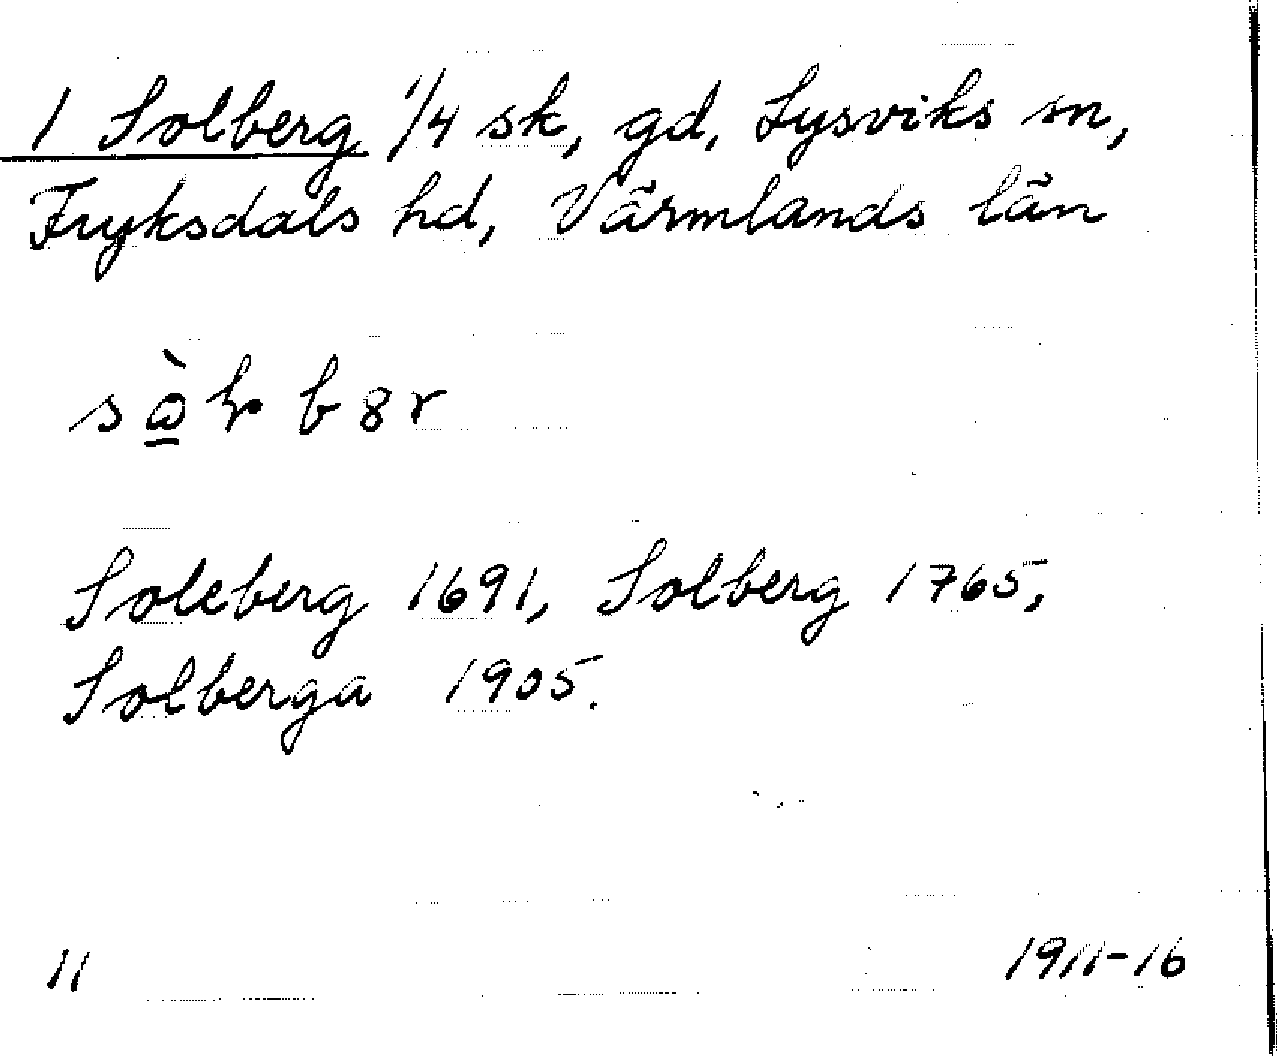 1 Solberg 1/4 sk, gd, Lysviks sn,
Fryksdals hd, Värmlands län
Soleberg 1691, Solberg 1765,
Solberga 1905.
11 1911-16